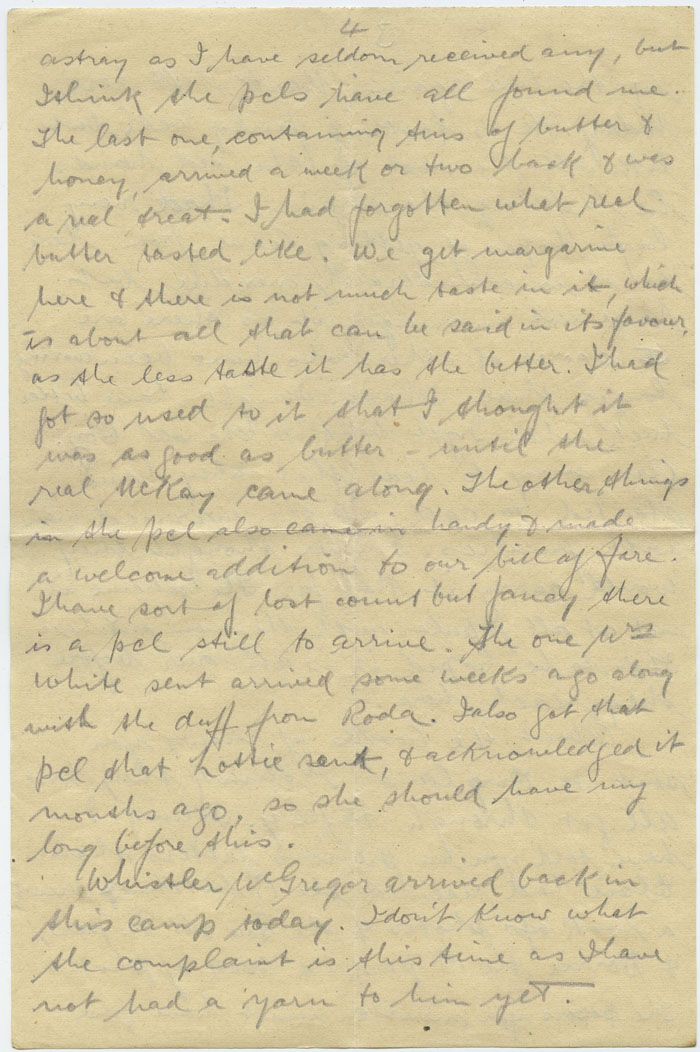 4
astray as I have seldom received any, but
I think the pcls have all found me.
The last one, containing tins of butter &
honey, arrived a week or two back & was
a real treat. I had forgotten what real
butter tasted like. We get margarine
here & there is not much taste in it, which
is about all that can be said in its favour,
as the less taste it has the better. I had
got so used to it that I thought it
was as good as butter - until the
real McKay came along. The other things
in the pcl also came in handy & made
a welcome addition to our bill of fare.
I have sort of lost count but fancy there
is a pcl still to arrive. The one Mrs
White sent arrived some weeks ago along
with the duff from Roda. I also got that
pcl that Lottie sent, & acknowledged it
months ago, so she should have my
long before this.
Whistler McGregor arrived back in
this camp today. I don't know what
the complaint is this time as I have
not had a yarn to him yet.